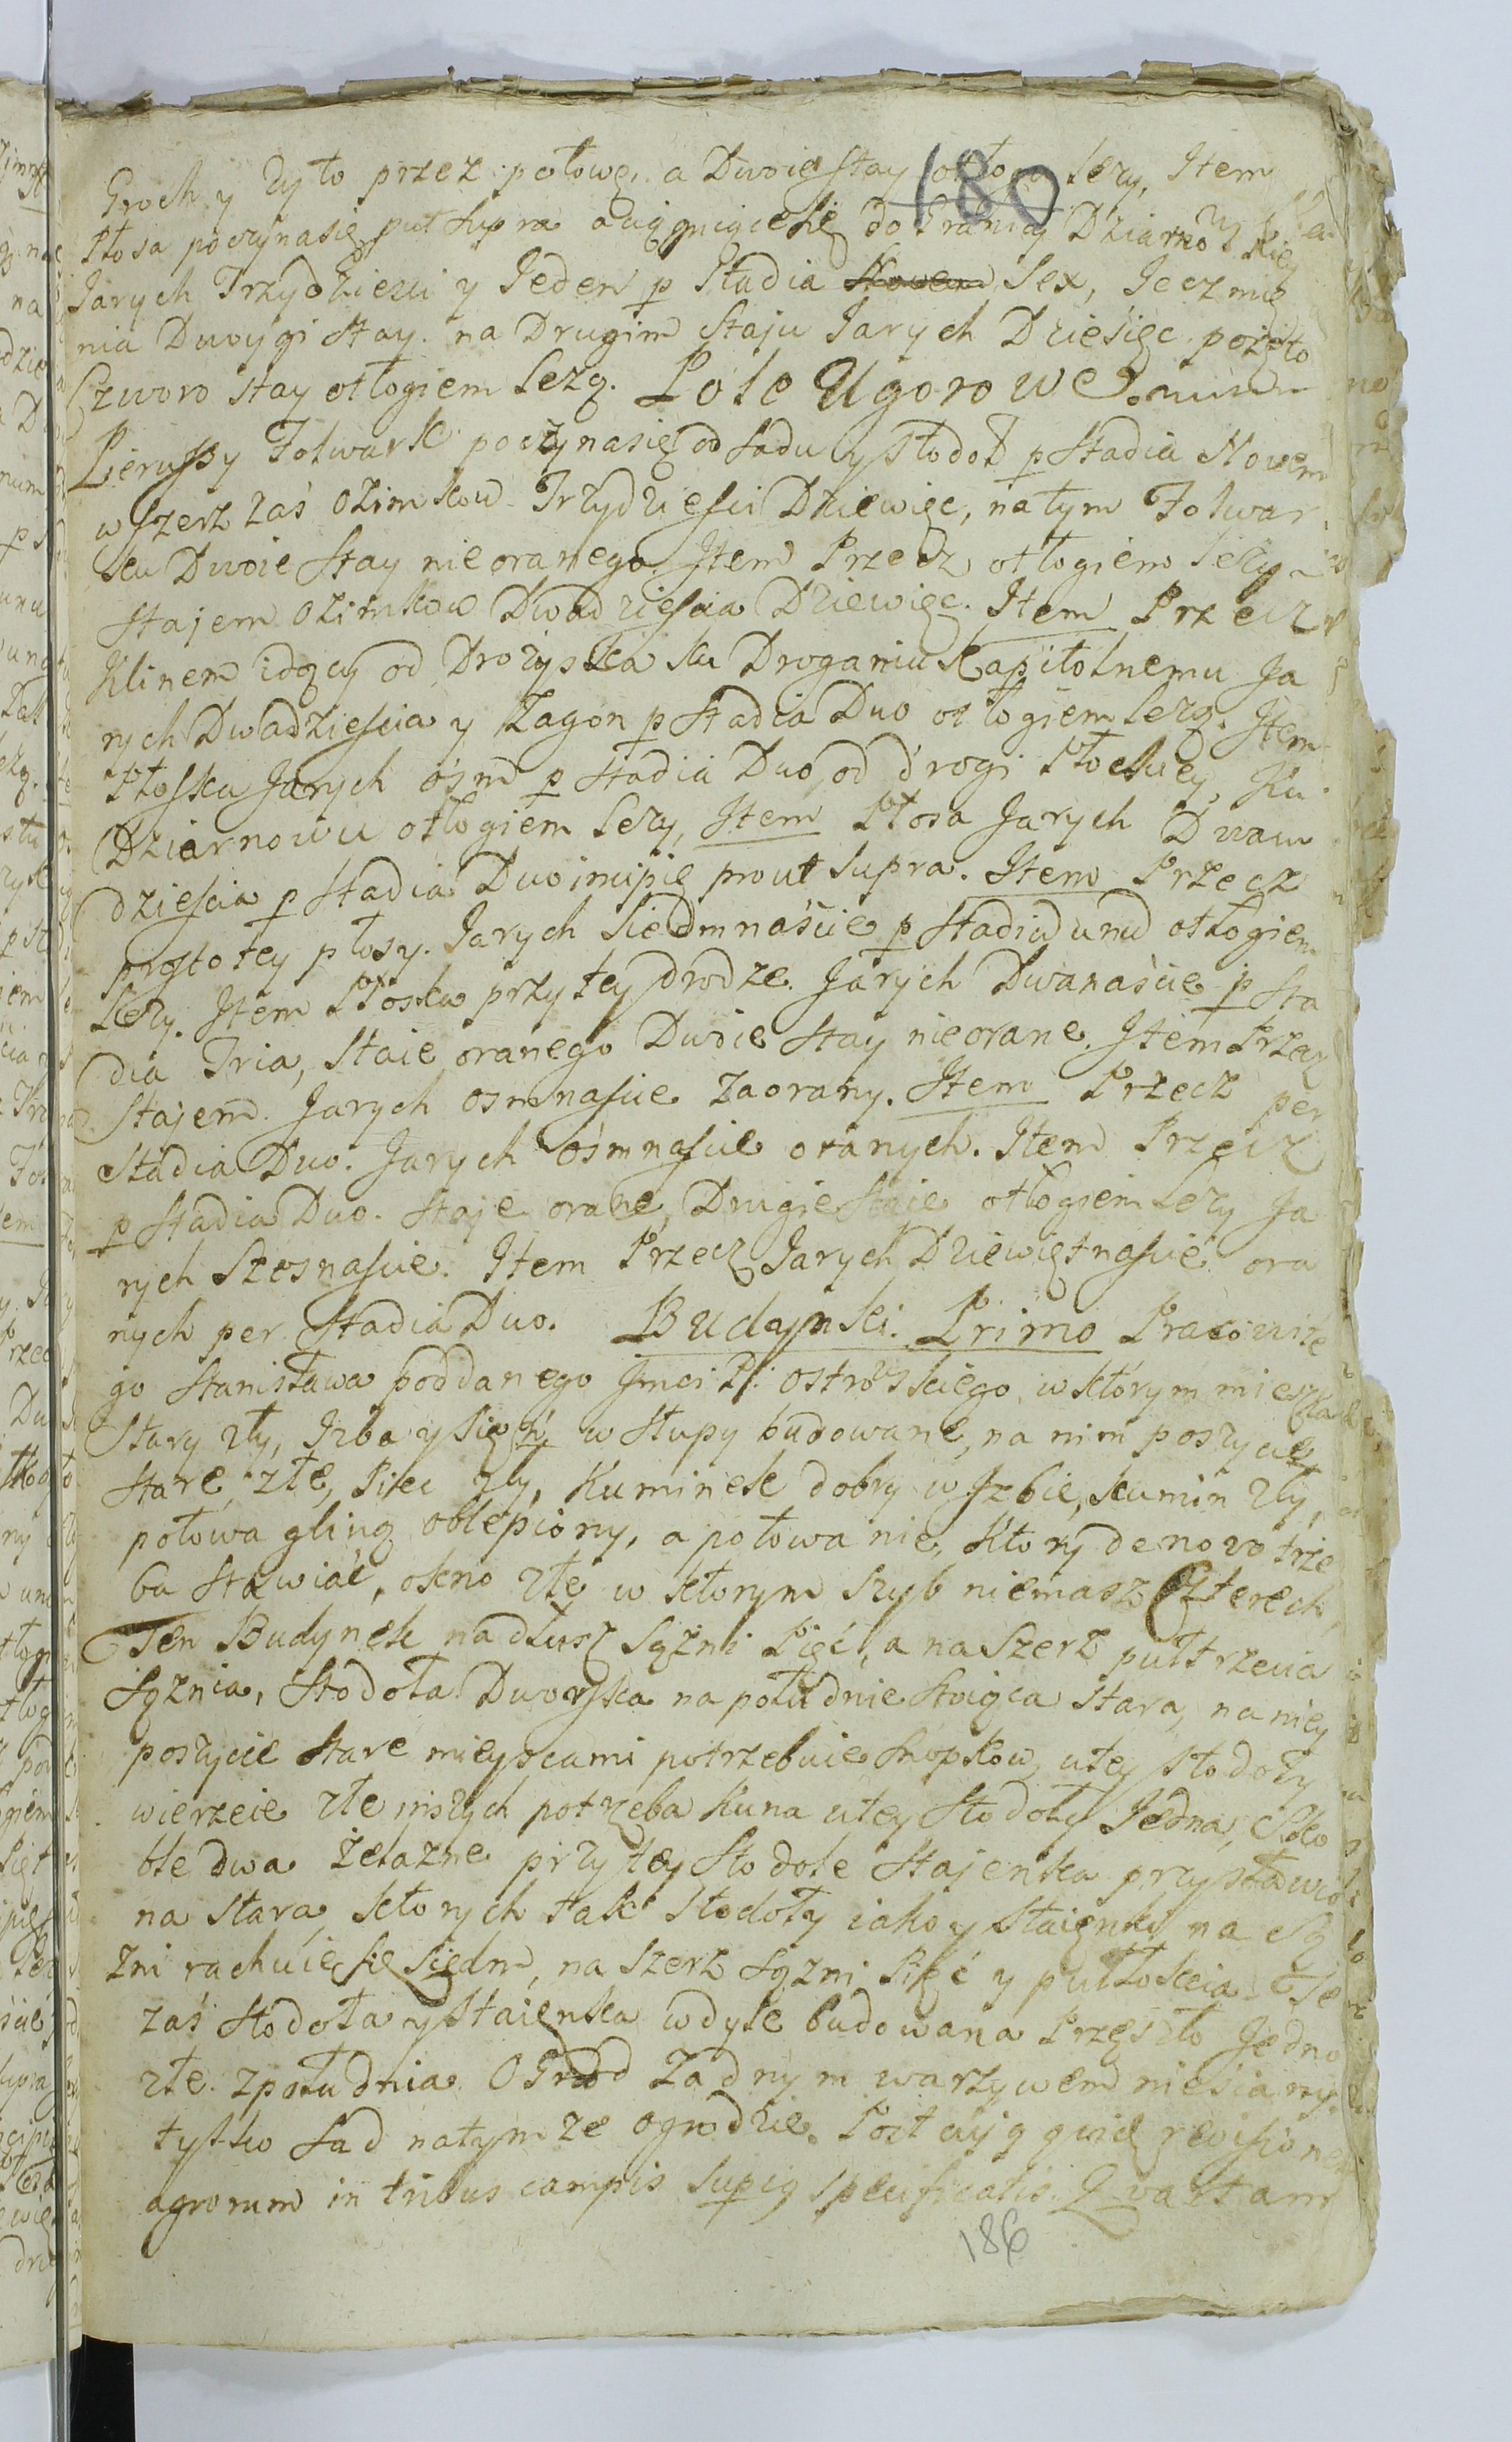 Groch y Żyto przez połowę, a Dwoie stay leży, Item
180
Płosa poczynasię put supra aciągniącesię do Granicy Dziarnowskiey
Jarych Trzydzieści y Jeden p Stadia Novem Sex, Jeczmię
nia Dwoygi stay. na Drugim Staju Jarych Dziesięc pożęto
Czworo stay otłogiem leżą. Pole Ugorowe
Pierwszy Folwark poczynasię od Sadu y Stodoł p Stadia Novem
w szerz zaś ozimkow Trzydziesci Dziewięc, natym Folwar
ku Dwoie Stay nieoranego Item Przecz otłogiem leży
Stajem ozimkow Dwadziescia Dziewięc. Item Przecz
Klinem idący od Drożyska ku Droganiu Kapitolnemu Ja
rych Dwadziescia y Zagon p Stadia Duo otłogiem leżą. Item
Płoska Jarych ośm p Stadia Duo od drogi Płockiey, Ku
Dziarnowu otłogiem leży, Item Płosa Jarych Dwa
dziescia p Stadia Duo prout supra. Item Przecz
prosto tey płosy. Jarych Siedmnaście p Stadiu unu otłogiem
Leży. Item Płoska przy tey drodze. Jarych Dwanaście p Sta
dia Tria, Staie oranego Dwoie Stay nieorane. Item Przecz
Stajem. Jarych osmnascie zaorany. Item Przecz per
Stadia Duo. Jarych ośmnascie oranych. Item Przecz
p Stadia Duo. Staje orane, Drugie Staie otłogiem leży Ja
rych Szesnascie. Item Przecz Jarych Dziewiętnascie ora
nych per Stadia Duo. Budynki. Primo Pracowite
go Stanisława poddanego Jmci P. Ostrowskiego w którym mieszka
Stary zły, Izba y Sień w Słupy budowane, na nim poszycie
Stare złe, Piec zły, Kuminek dobry w Izbie, kumin zły,
połowa gliną oblepiony, a połowa nie, Ktory denovo trze
ba stawiać, okno złe w ktorym szyb niemasz Czterech,
Ten Budynek nadłusz Sążni Pięć, a na szerz pułtrzecia
Sążnia, Stodoła Dworska na południe Stoiąca Stara, na niey
poszycie Stare mieyscami potrzebuie Snopkow, utey Stodoły
wierzeie złe inszych potrzeba Kuna utey Stodoły Jedna, Sko
ble dwa żelazne przy tey Stodole Stajenka przystawio
na Stara, ktorych tak Stodoły iako y Staienki na Są
żni rachuie się siedm, na szerz Sążni Pięć y pułłokcia. Te
zaś Stodoła y Staienka w dyle budowana Przęsło Jedno
złe. z południa Ogrod Żadnym warzywem niesiany.
tylko Sad natymże ogrodzie. Post revisionem
agrorum in tribus campis specificatis. Qvartam
186